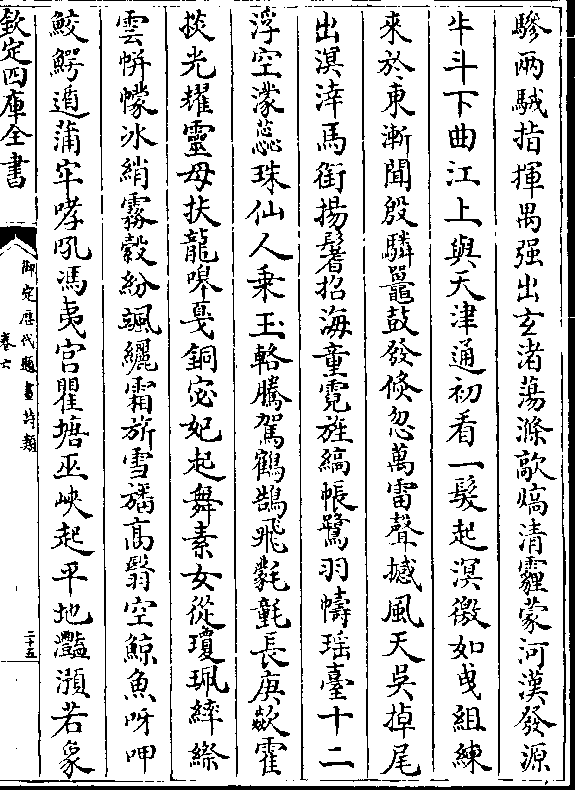 驂兩駥指揮禺强出玄渚蕩滌歊熇清霾蒙河漢發源
牛斗下曲江上與天津通初看一髮起溟徼如曳組練
來於東漸聞殷轔鼉鼓發倏忽萬雷聲撼風天吳掉尾
出溟涬馬銜揚鬐招海童霓旌縞帳鷺羽幬瑶臺十二
浮空濛蕊珠仙人乘玉輅騰駕鶴鵠飛氋氃長庚歘霍
掞光耀靈母扶龍嘷戛銅宓妃起舞素女從瓊珮縩
雲帡幪冰綃霧縠紛颯纚霜旂雪旛高翳空鯨魚呀呷
鮫鰐遁蒲牢哮吼馮夷宫瞿塘巫峽起平地灩澦若象
欽定四庫全書
御定歴代題畫詩類
卷六
二十五